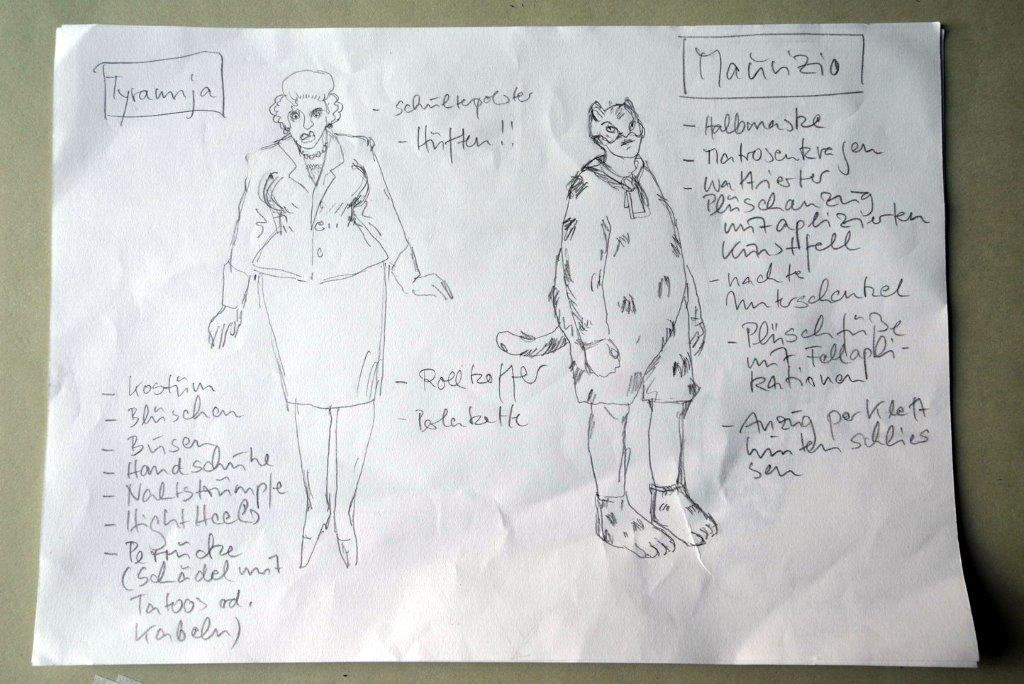 Tyrannja
- Schulterpolster
- Hüften!!
- Kostüm
- Blüschen
- Busen
- Handschuhe
- Nahtstrümpfe
- Hight Heels
- Perrücke
(Schädel mit
Tatoos od.
Kabeln)
- Rollkoffer
- Perlenkette
Maurizio
- Halbmaske
- Matrosenkragen
- wattierter
Plüschanzug
mit aplizierten
Kunstfell
- nackte
Unterschenkel
- Plüschfüße
mit Fellapli-
kationen
- Anzug per Klett
hinten schlies
sen